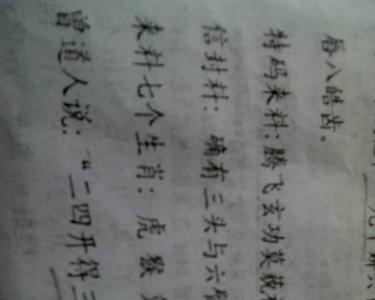 唇八皓齿。
特码来料:腾飞玄功莫
信封料: 确有三头与六
来料七个生肖: 虎 猴
曾道人说: “二四开得三